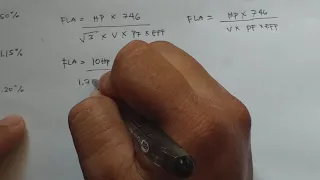 50%
FLA = HP × 746
√3 × V × PF × EFF
FLA = HP × 746
V × PF × EFF
1.15%
FLA = 10HP
1.7
1.20%